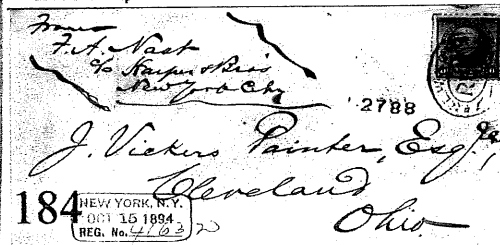 From
F. A. Nast
c/o Harper & Bros
New York City
2788
J. Vickers Painter, Esq.,
Cleveland
Ohio
184
NEW YORK, N.Y.
OCT 15 1894
REG. No. 4163